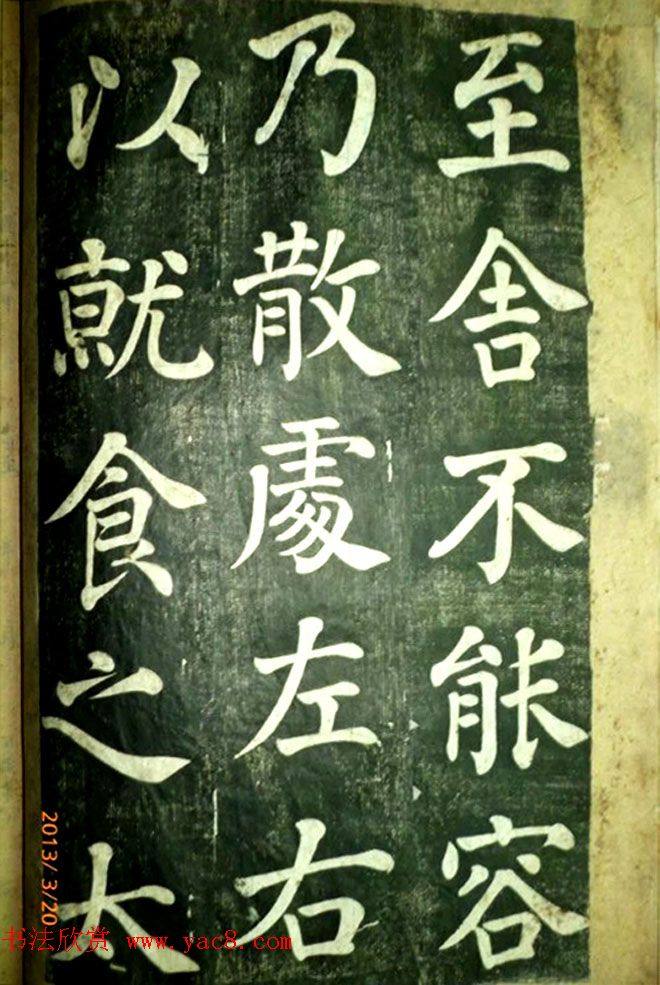 至舍不能容
乃散處左右
以就食之太
2013/ 3/20
书法欣赏 www.yac8.com